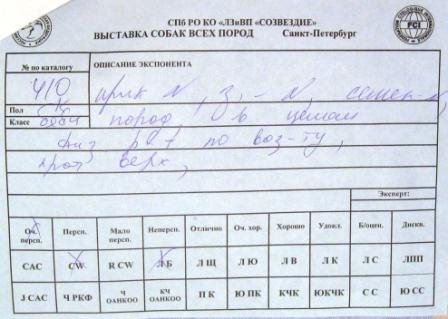 СПб РО КО «ЛЗиВП «СОЗВЕЗДИЕ»
ВЫСТАВКА СОБАК ВСЕХ ПОРОД Санкт-Петербург
FCI
№ по каталогу ОПИСАНИЕ ЭКСПОНЕНТА
410
Пол
Класс
пород, в целом
физ раз по воз-ту,
верх,
Эксперт:
Оч. персп. Персп. Мало персп. Неперсп. Отлично Оч. хор. Хорошо Удовл. Б/оцен. Дискв.
CAC CW R CW ЛБ Л Щ Л Ю Л В Л К Л С ЛПП
J CAC Ч РКФ Ч ОАНКОО КЧ ОАНКОО П К Ю ПК КЧК ЮКЧК С С Ю СС